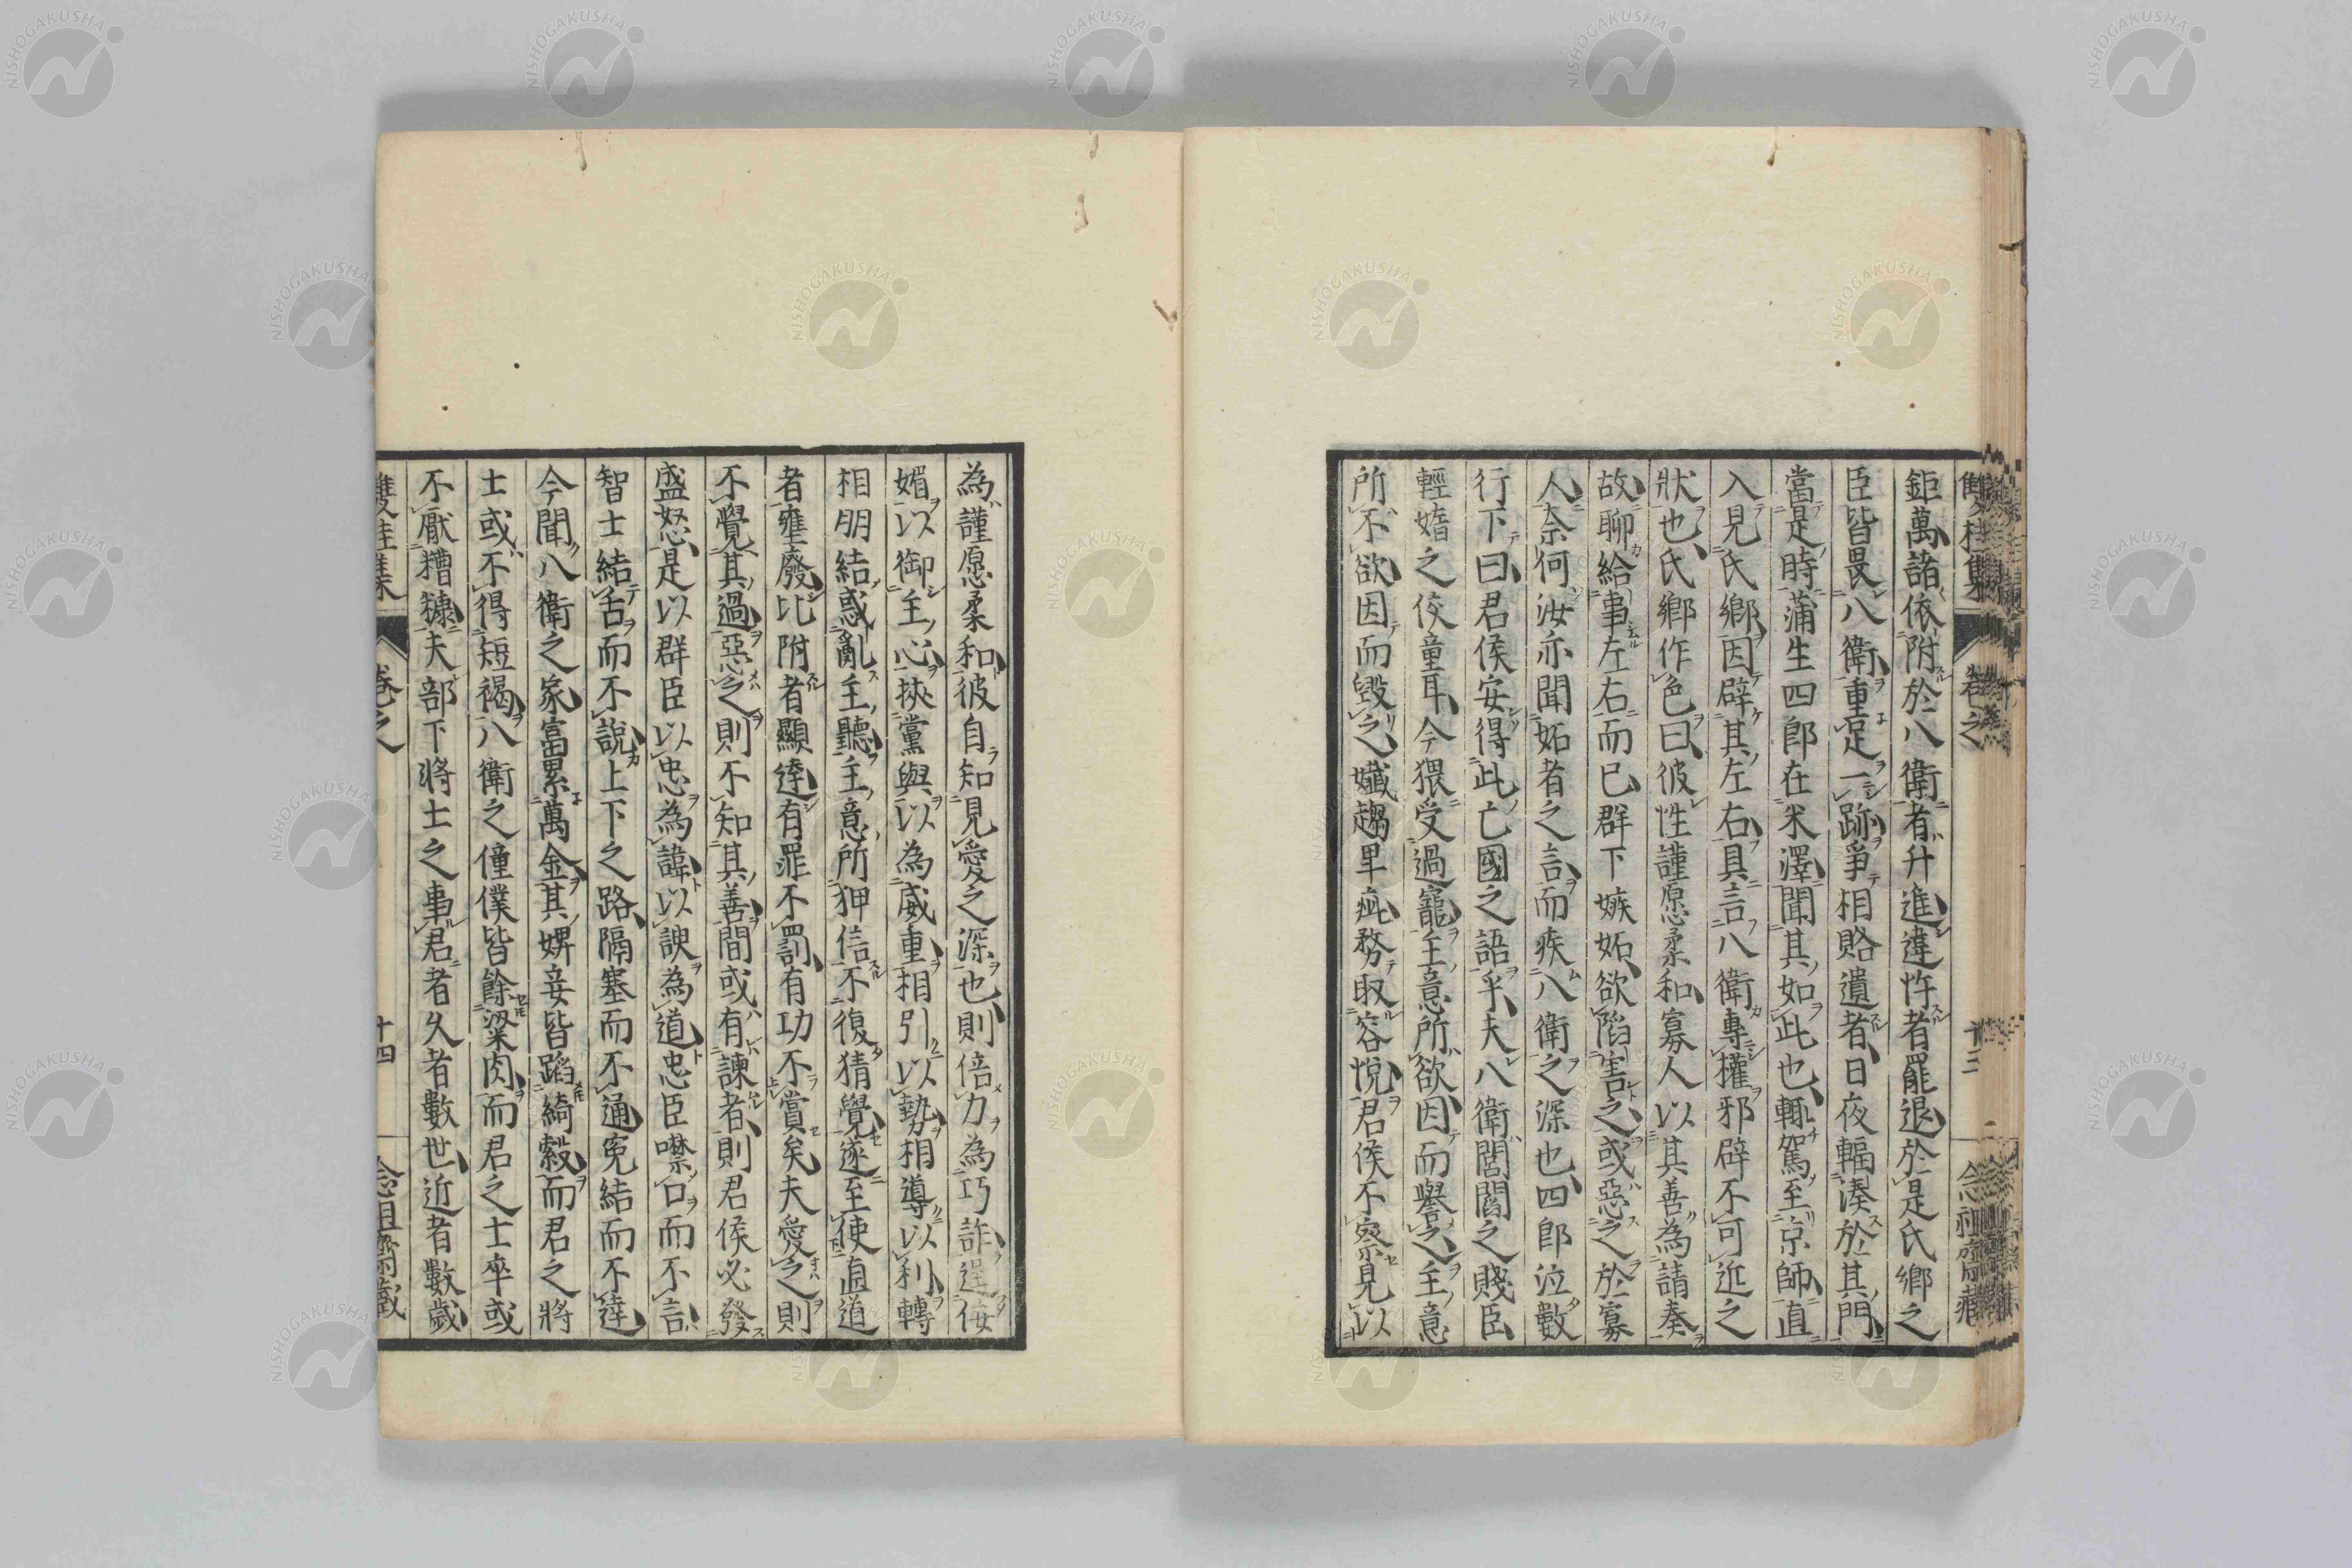 雙桂集 卷之 十三 念祖齋藏
鉅萬諸依附於八衛者升進違忤者罷退於是氏鄉之
臣皆畏八衛重足一跡爭相賂遺者日夜輻湊於其門
當是時蒲生四郎在米澤聞其如此也輒駕至京師直
入見氏鄉因辟其左右具言八衛專權邪辟不可近之
狀也氏鄉作色曰彼性謹愿柔和寡人以其善為請奏
故聊給事左右而已群下嫉妬欲陷害之或惡之於寡
人奈何汝亦聞妬者之言而疾八衛之深也四郎泣數
行下曰君侯安得此亡國之語乎夫八衛閭閻之賤臣
輕媠之佼童耳今猥受過寵主意所欲因而譽之主意
所不欲因而毀之孅趨卑疵務取容悅君侯不察見以
為謹愿柔和彼自知見愛之深也則倍力為巧詐逞佞
媚以御主心挾黨與以為威重相引以勢相導以利轉
相朋結惑亂主聽主意所狎信不復猜覺遂至使直道
者壅廢比附者顯達有罪不罰有功不賞矣夫愛之則
不覺其過惡之則不知其善間或有諫者則君侯必發
盛怒是以群臣以忠為諱以諛為道忠臣噤口而不言
智士結舌而不說上下之路隔塞而不通冤結而不達
今聞八衛之家富累萬金其婢妾皆蹈綺縠而君之將
士或不得短褐八衛之僮僕皆餘粱肉而君之士卒或
不厭糟糠夫部下將士之事君者久者數世近者數歲
雙桂集 卷之 十四 念祖齋藏
NISHOGAKUSHA